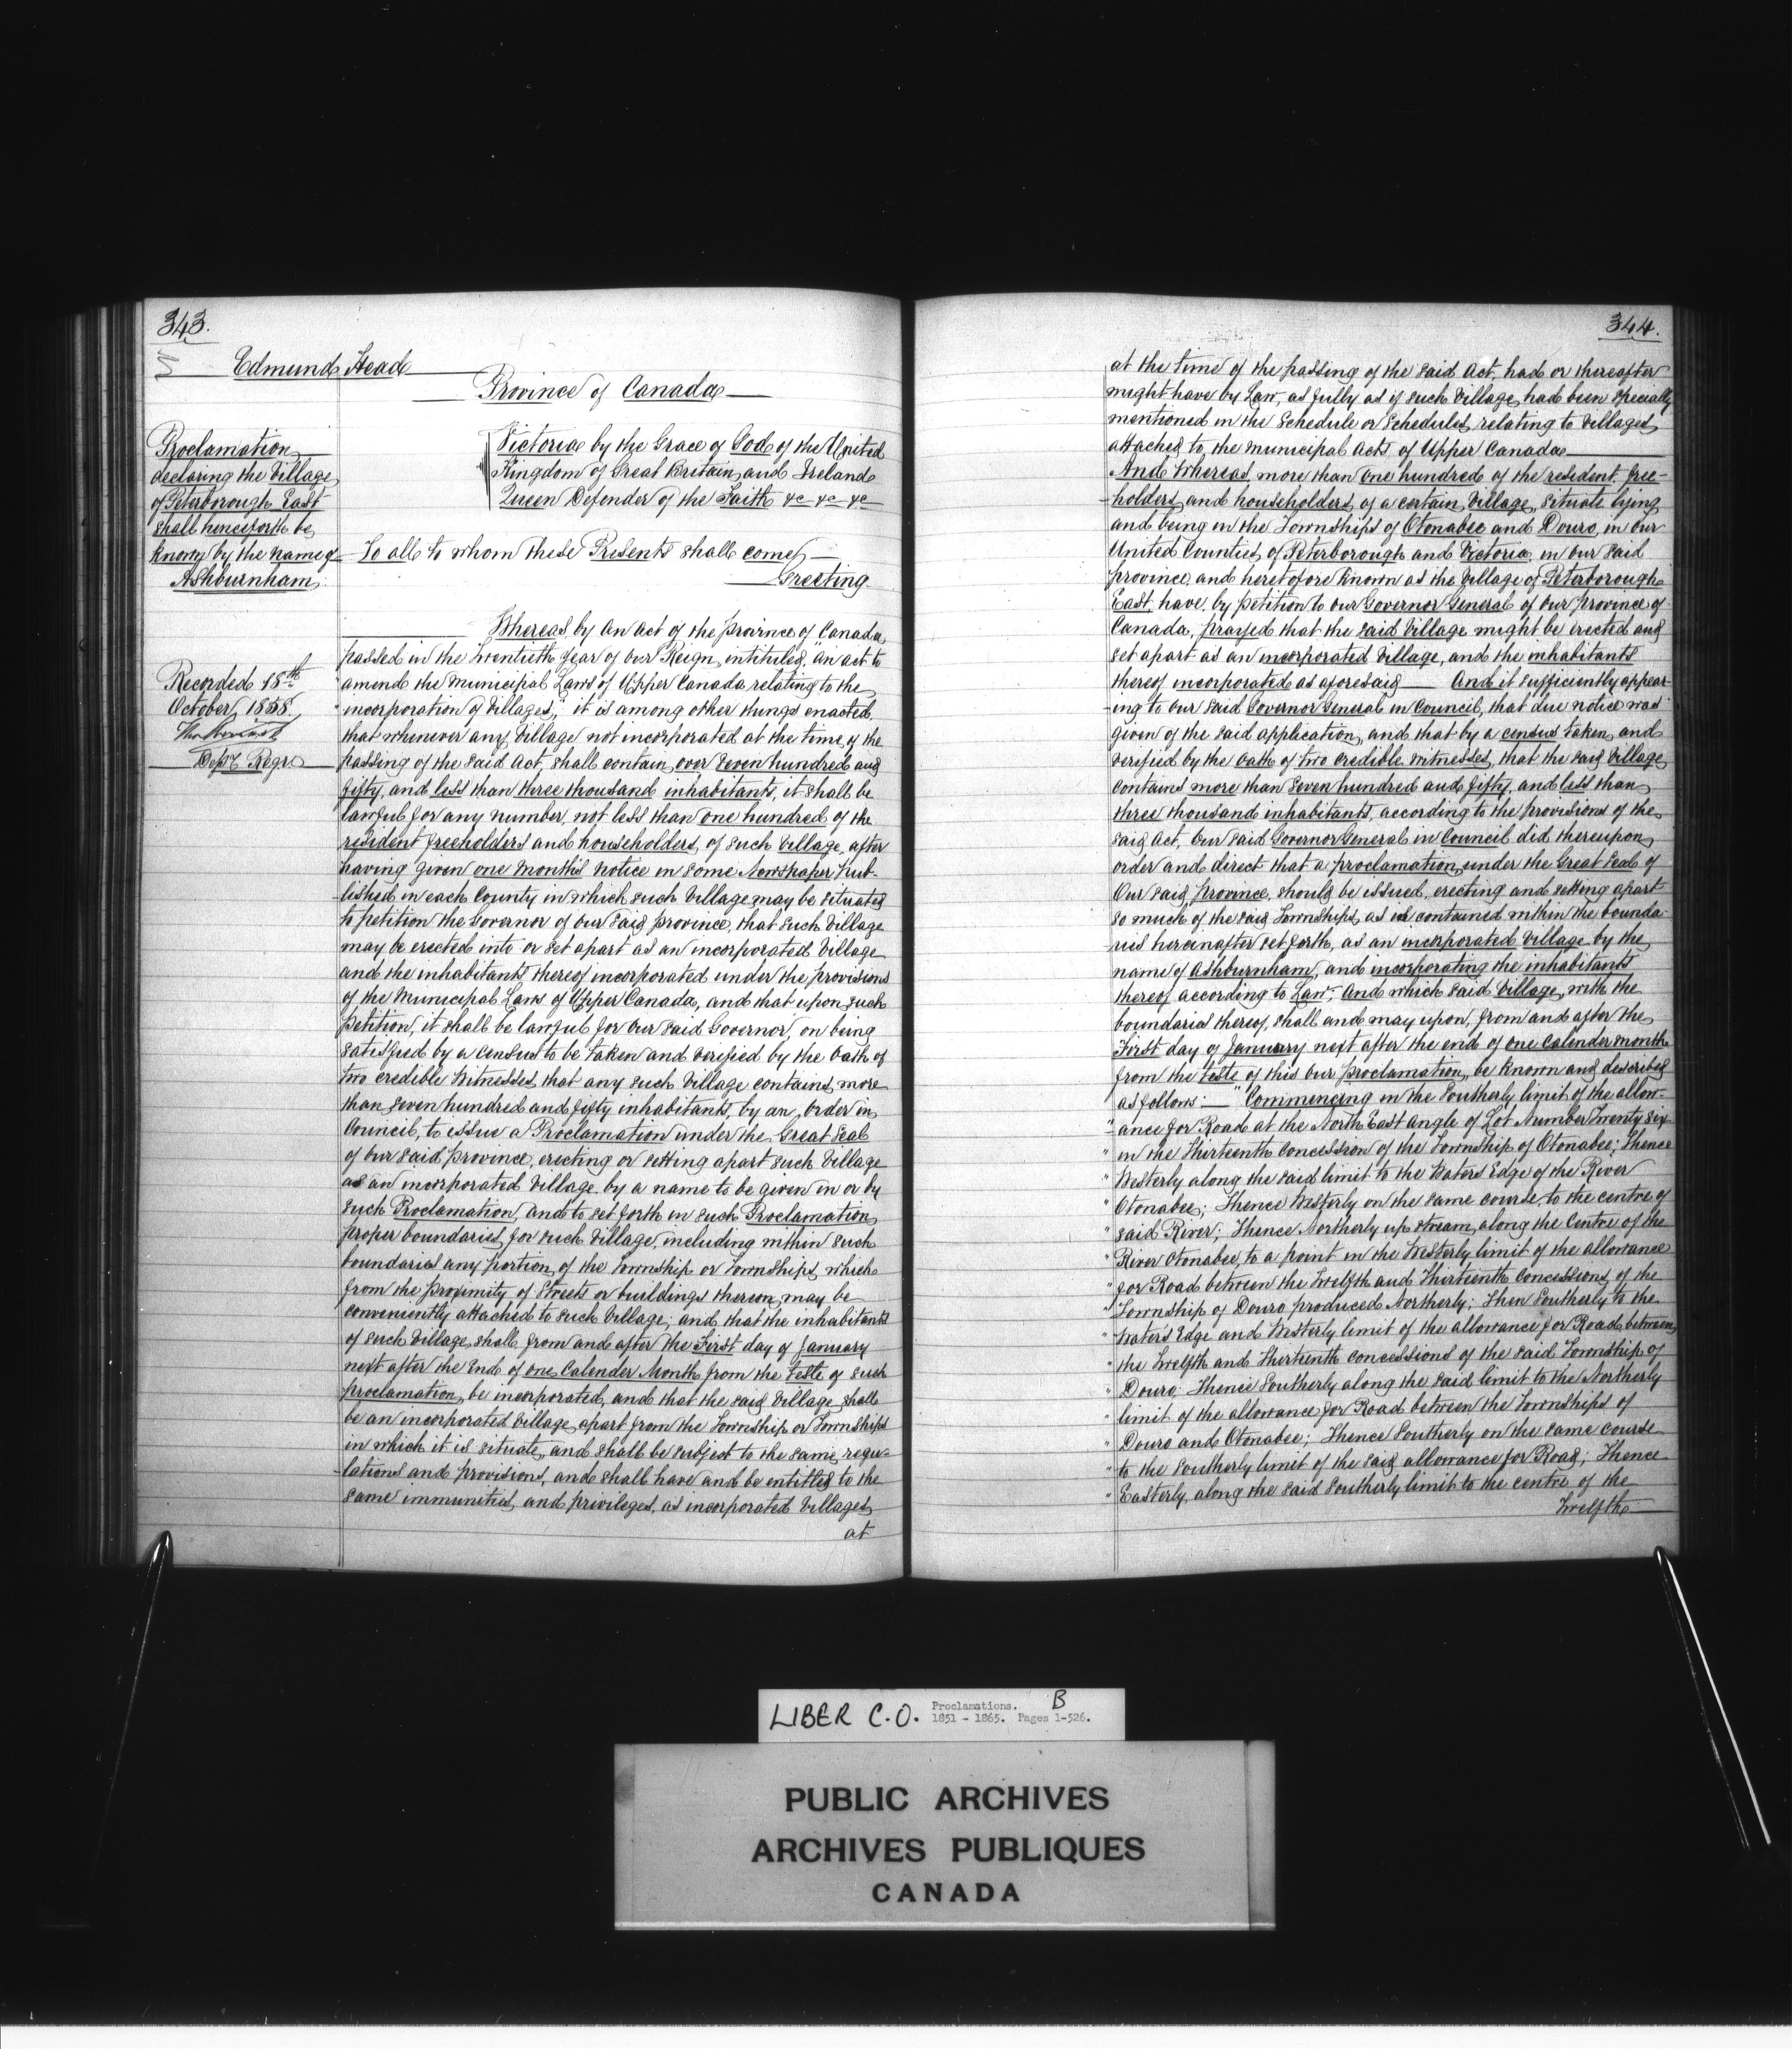 343.
Edmund Head
Province of Canada
Proclamation
declaring the Village
of Peterborough East
shall henceforth be
known by the name of
Ashburnham.
Victoria by the Grace of God of the United
Kingdom of Great Britain and Ireland
Queen Defender of the Faith &c &c &c
To all to whom these Presents shall come
Greeting
Recorded 18th
October, 1858.
Depy Regr.
Whereas by an Act of the province of Canada
passed in the Twentieth year of Our Reign, intituled, "An act to
" amend the Municipal Laws of Upper Canada relating to the
" incorporation of Villages," it is among other things enacted
that whenever any Village not incorporated at the time of the
passing of the said Act, shall contain over Seven hundred and
fifty, and less than three thousand inhabitants, it shall be
lawful for any number not less than one hundred of the
resident freeholders and householders of such Village, after
having given one months notice in some Newspaper Pub-
lished in each County in which such Village may be situated
to petition the Governor of our said province, that such Village
may be erected into or set apart as an incorporated Village
and the inhabitants thereof incorporated under the provisions
of the Municipal Laws of Upper Canada, and that upon such
petition, it shall be lawful for Our said Governor, on being
satisfied by a census to be taken and verified by the Oath of
two credible Witnesses, that any such Village contains more
than Seven hundred and fifty inhabitants, by an Order in
Council, to issue a Proclamation under the Great Seal
of our said province, erecting or setting apart such Village
as an incorporated Village by a name to be given in or by
such Proclamation, and to set forth in such Proclamation
proper boundaries for such Village, including within such
boundaries any portion of the Township or Townships which
from the proximity of Streets or buildings thereon may be
conveniently attached to such Village; and that the inhabitants
of such Village shall from and after the First day of January
next after the End of one Calender Month from the teste of such
proclamation, be incorporated, and that the said Village shall
be an incorporated Village apart from the Township or Townships
in which it is situate, and shall be subject to the same regu-
lations and provisions, and shall have and be entitled to the
same immunities and privileges, as incorporated Villages
at
344.
at the time of the passing of the said Act, had or thereafter
might have by Law, as fully as if such Village had been specially
mentioned in the Schedule or Schedules relating to Villages
attached to the Municipal Acts of Upper Canada
And Whereas more than one hundred of the resident free-
holders and householders of a certain Village, situate lying
and being in the Townships of Otonabee and Douro, in our
United Counties of Peterborough and Victoria, in our said
province, and heretofore known as the Village of Peterborough
East, have by petition to our Governor General of our province of
Canada, prayed that the said Village might be erected and
set apart as an incorporated Village, and the inhabitants
thereof incorporated as aforesaid And it sufficiently appear-
ing to our said Governor General in Council, that due notice was
given of the said application, and that by a census taken and
verified by the Oath of two credible Witnesses, that the said Village
contains more than Seven hundred and fifty, and less than
three thousand inhabitants, according to the provisions of the
said Act, Our said Governor General in Council did thereupon
order and direct that a proclamation under the Great Seal of
Our said province, should be issued, erecting and setting apart
so much of the said Townships as is contained within the bounda-
ries hereinafter set forth, as an incorporated Village by the
name of Ashburnham, and incorporating the inhabitants
thereof according to Law. And which said Village, with the
boundaries thereof, shall and may upon, from and after the
First day of January next after the end of one Calender month
from the teste of this our proclamation, be known and described
as follows: "Commencing in the Southerly limit of the allow-
"ance for Road at the North East angle of Lot Number Twenty six
" in the Thirteenth concession of the Township of Otonabee; Thence
" Westerly along the said limit to the Waters Edge of the River
" Otonabee; Thence Westerly on the same course, to the centre of
" said River; Thence Northerly up stream, along the Centre of the
" River Otonabee, to a point in the Westerly limit of the allowance
" for Road between the Twelfth and Thirteenth Concessions of the
" Township of Douro produced Northerly; Then Southerly to the
" Water's Edge and Westerly limit of the allowance for Road between
" the Twelfth and Thirteenth concessions of the said Township of
" Douro. Thence Southerly along the said limit to the Northerly
" limit of the allowance for Road between the Townships of
" Douro and Otonabee; Thence Southerly on the same course
" to the Southerly limit of the said allowance for Road; Thence
" Easterly, along the said Southerly limit to the centre of the
Twelfth
LIBER C.O. Proclamations. B
1851 - 1865. Pages 1-526.
PUBLIC ARCHIVES
ARCHIVES PUBLIQUES
CANADA